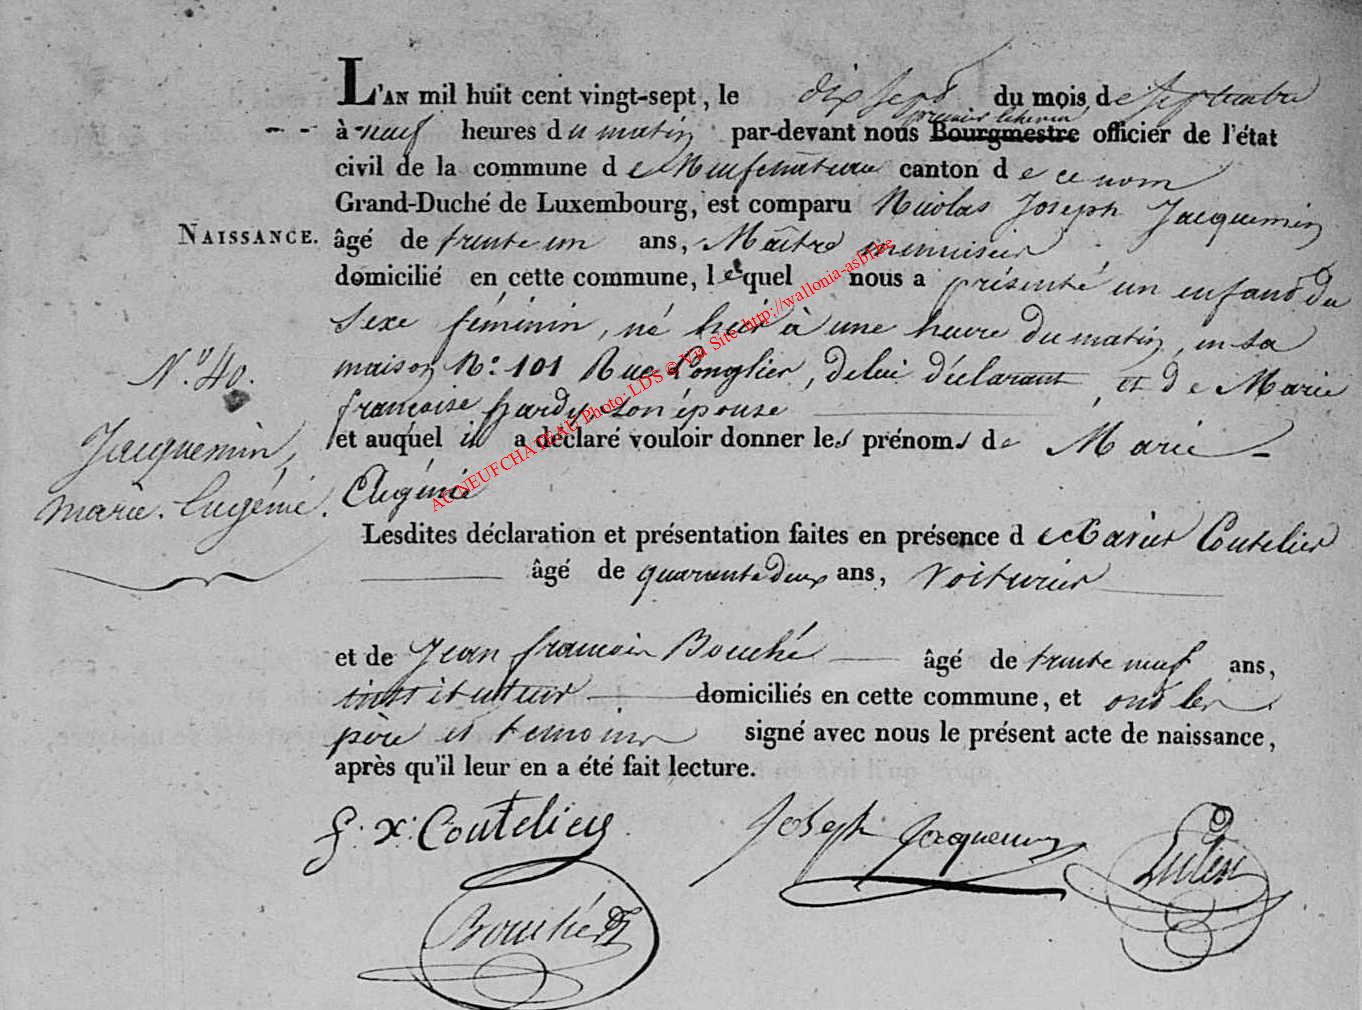 L'AN mil huit cent vingt-sept, le dix sept du mois de septembre
premier échevin
à neuf heures du matin par-devant nous Bourgmestre officier de l'état
civil de la commune de Neufchateau canton de ce nom
Grand-Duché de Luxembourg, est comparu Nicolas Joseph Jacquemin
NAISSANCE.
âgé de trente un ans, Maître menuisier
domicilié en cette commune, lequel nous a présenté un enfant du
Sexe féminin, né hier à une heure du matin, en sa
maison N.º 101 Rue Longlier, de lui déclarant, et de Marie
françoise hardy, son épouse
et auquel il a déclaré vouloir donner les prénoms de Marie
Eugénie
N.º 40.
Jacquemin,
marie. Eugénie.
Lesdites déclaration et présentation faites en présence de Xavier Coutelier
âgé de quarante deux ans, Voiturier
et de Jean françois Bouché âgé de trente neuf ans,
instituteur domiciliés en cette commune, et ont les
père et temoins signé avec nous le présent acte de naissance,
après qu'il leur en a été fait lecture.
f: x: Coutelier
Joseph Jacquemin
Bouché
AC NEUFCHATEAU Photo: LDS © Vu Site http://wallonia-asbl.be